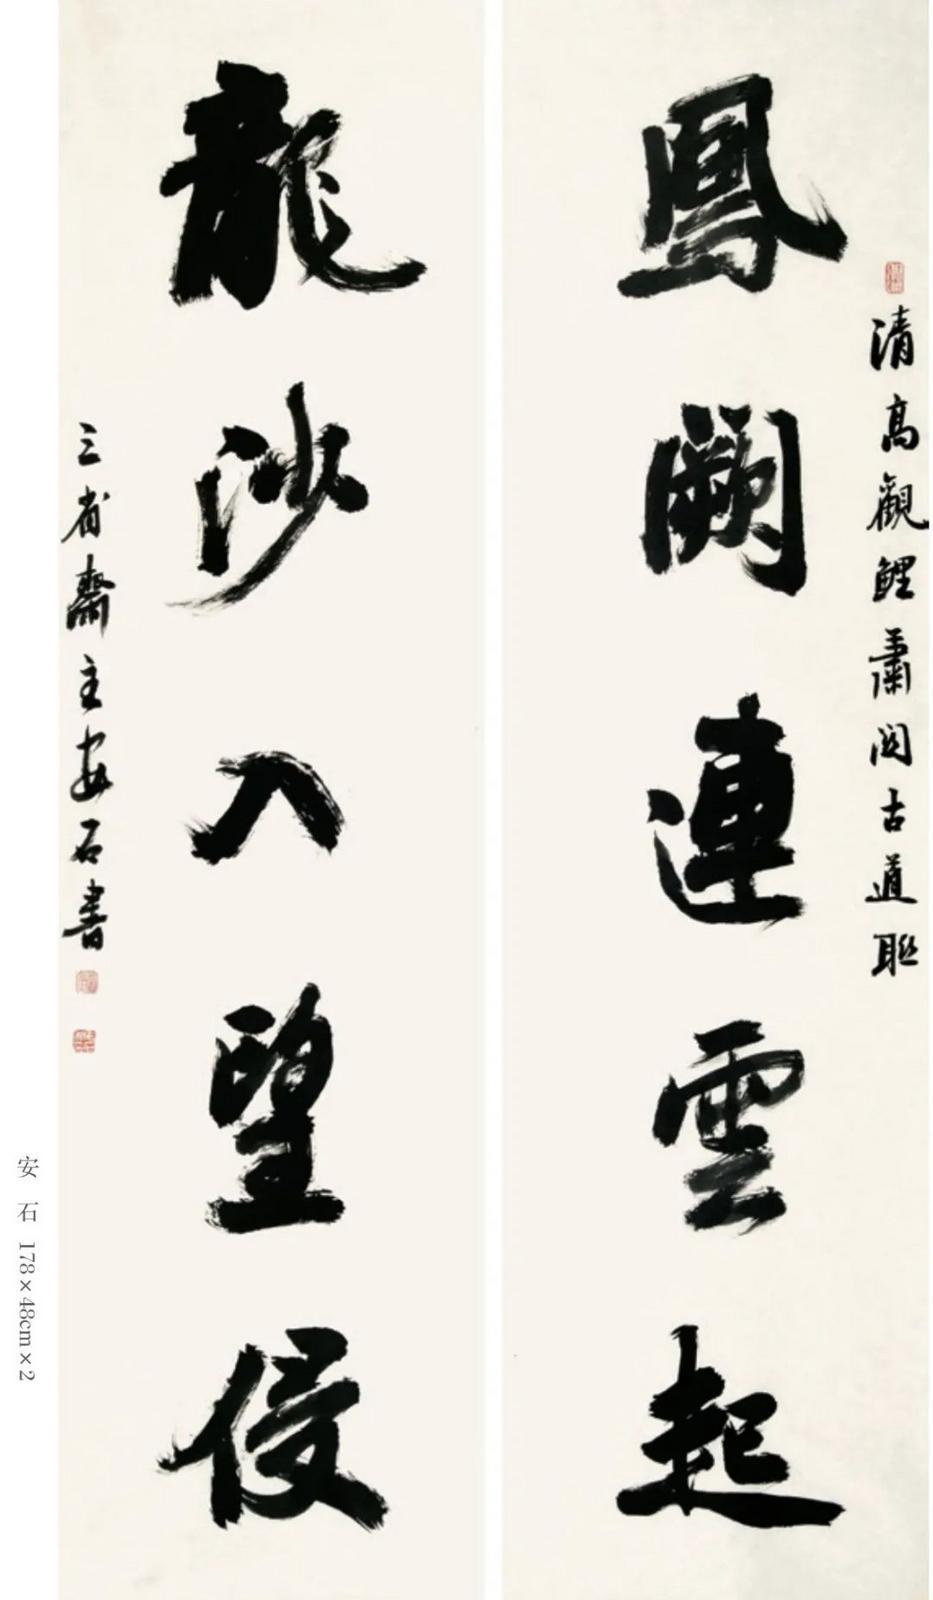 清高觀鯉肅閱古道聯
鳳闕連雲起
龍沙入望侵
三省齋主安石書
安 石 178×48cm×2